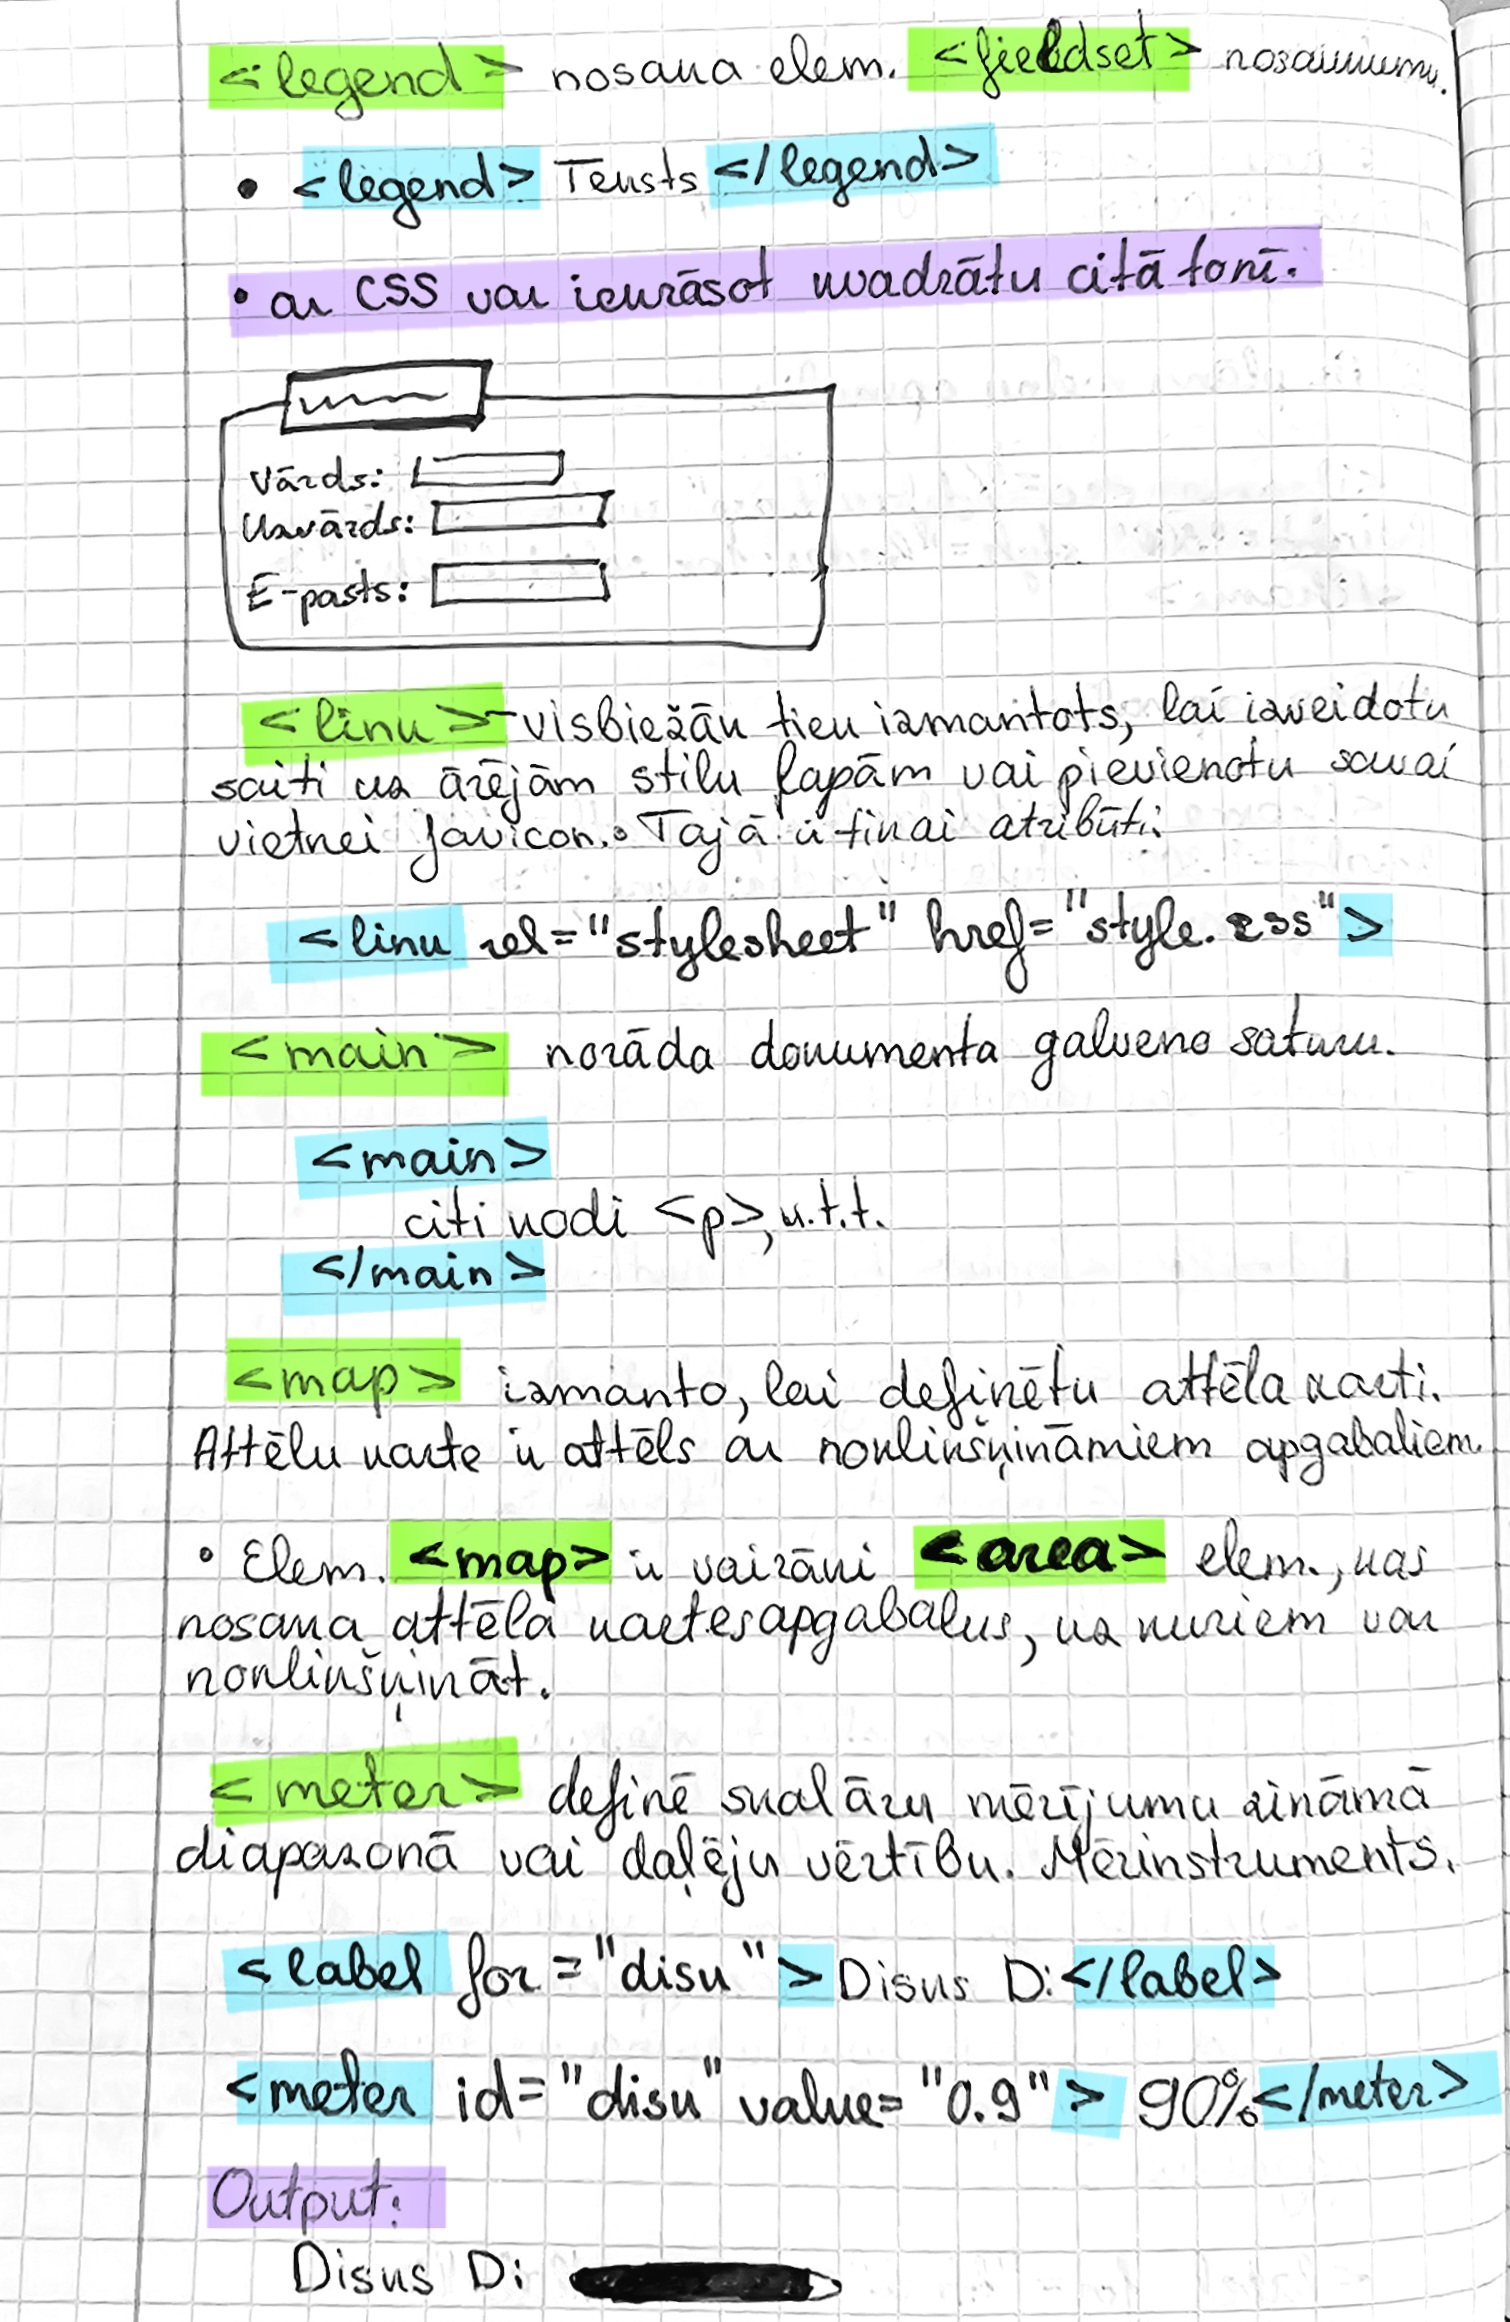 <legend> nosaka elem. <fieldset> nosaukumu.
• <legend> Teksts </legend>
• ar CSS var iekrāsot kvadrātu citā tonī.
Vārds:
Uzvārds:
E-pasts:
<link> - visbiežāk tiek izmantots, lai izveidotu
saiti uz ārējām stilu lapām vai pievienotu savai
vietnei favicon. • Tajā ir tikai atribūti:
<link rel="stylesheet" href="style.css">
<main> norāda dokumenta galveno saturu.
<main>
citi kodi <p>, u.t.t.
</main>
<map> izmanto, lai definētu attēla karti.
Attēlu karte ir attēls ar noklikšķināmiem apgabaliem.
• Elem. <map> ir vairāki <area> elem., kas
nosaka attēla kartes apgabalus, uz kuriem var
noklikšķināt.
<meter> definē skalāru mērījumu zināmā
diapazonā vai daļēju vērtību. Mērinstruments.
<label for="disk">Disks D:</label>
<meter id="disk" value="0.9">90%</meter>
Output:
Disks D: